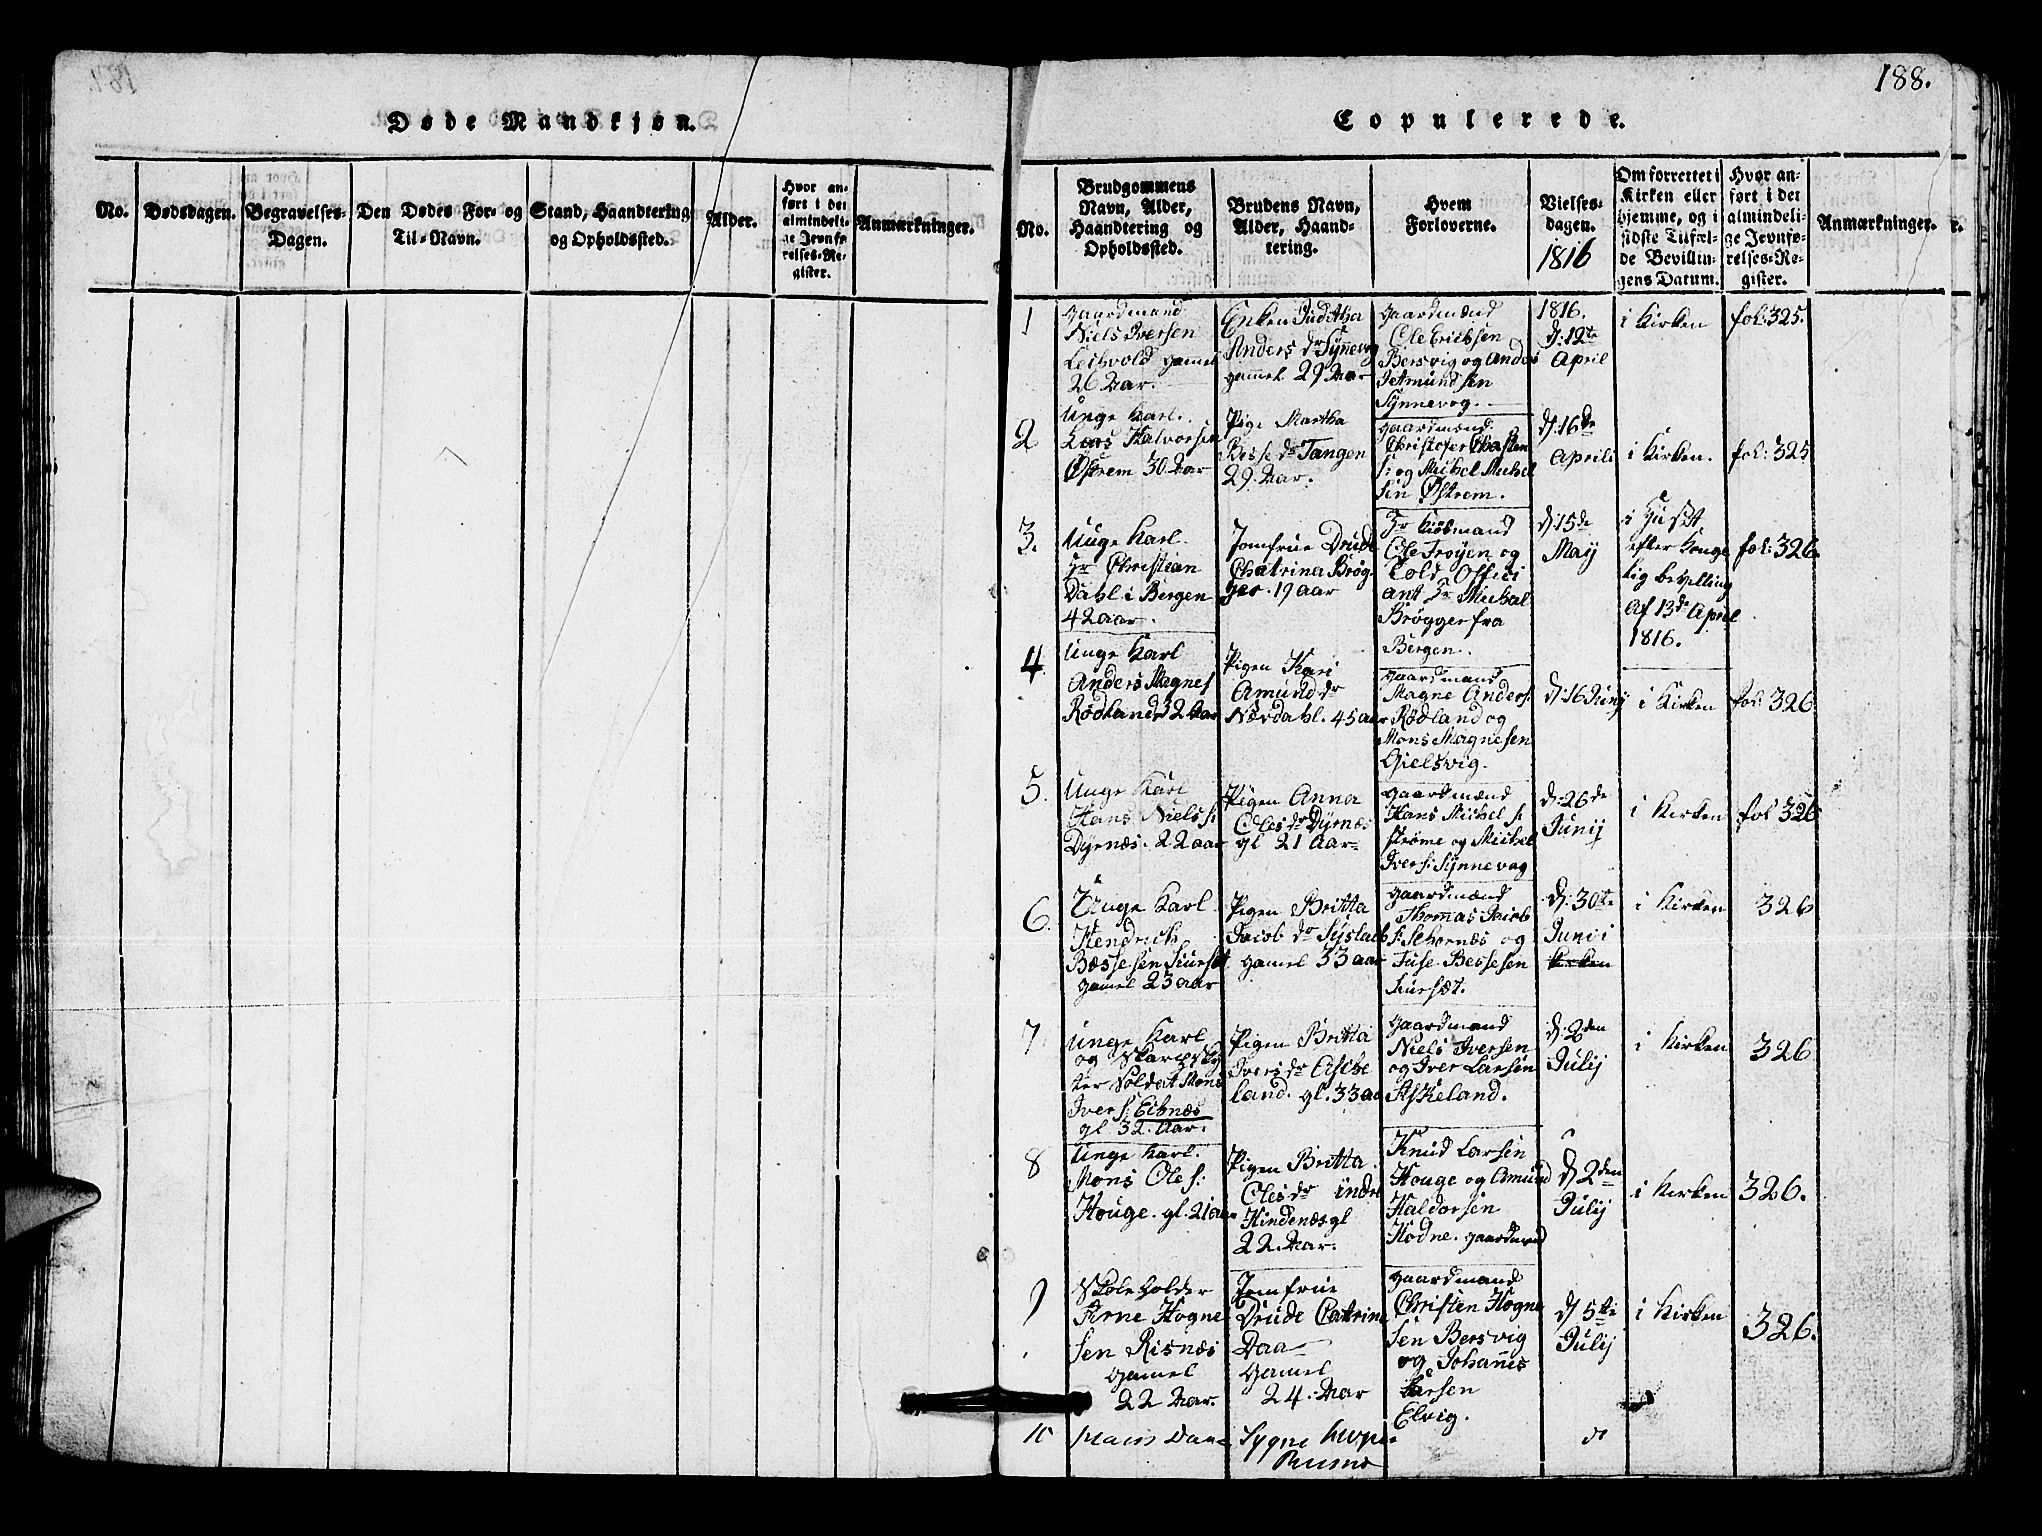 188.
Døde Mandkjøn.
No.
Dødsdagen.
Begravelses-
Dagen.
Den Dødes For- og
Til-Navn.
Stand, Haandtering
og Opholdssted.
Alder.
Hvor an-
ført i det
almindeli-
ge Jevnfø-
relses-Re-
gister.
Anmærkninger.
Copulerede.
No.
Brudgommens
Navn, Alder,
Haandtering og
Opholdssted.
Brudens Navn,
Alder, Haand-
tering.
Hvem
Forloverne.
Vielses-
dagen.
1816
Om forrettet i
Kirken eller
hjemme, og i
sidste Tilfæl-
de Bevillin-
gens Datum.
Hvor an-
ført i det
almindeli-
ge Jevnfø-
relses-Re-
gister.
Anmærkninger.
1
Gaardmand
Niels Iversen
Leithvold gamel
26 Aar.
Enken Juditha
Anders dr Synnevog
gamel 29 Aar
Gaardmænd
Ole Ericksen
Bersvig og Anders
Amundsen
Synnevog.
1816.
d: 12te
April
i Kirken
fol: 325.
2
Unge Karl.
Lars Halvorsen
Østrem 30 Aar
Pige Martha
Besse dr Tangen
29. Aar.
Gaardmænd.
Christofer Charsten
s: og Michel Michel
sen Østrem.
d: 16de
Aprili
i Kirken.
fol: 325
3.
Unge Karl.
Hr Christian
Dahl i Bergen
42 aar.
Jomfrue Drude
Chatrina Brøg-
ger. 19 aar
Hr Kiøbmand
Ole Troyen og
Told Offici
ant Hr Michal
Brøgger fra
Bergen.
d: 15de
May
i Huset
efter Konge
lig bevelling
Af 13de April
1816.
fol: 326.
4.
Unge Karl
Anders Magnes
Rødland 32 Aar
Pigen Kari
Amund dr
Nærdahl. 45 aar
Gaardmænd
Magne Anders:
Rødland og
Mons Magnesen
Gielsvig.
d: 16 Juny
i Kirken
fol: 326.
5.
Unge Karl
Hans Niels s:
Dyrnæs. 22 aar
Pigen Anna
Oles dr Dyrnæs
gl 21 Aar
Gaardmænd
Hans Michel s:
strøme og Michel
Ivers: Synnevag
d: 26de
Junij
i Kirken
fol 326
6.
Unge Karl
Hendrick
Bæssesen Siursæt
gamel 23 aar
Pigen Britta
Jacob dr
gamel 33 aar
Gaardmænd
Thomas Jacob
s: og
Besse­sen
Siursæt.
d: 30te
Juni i
i Kirken
326
7.
Unge Karl
og Skarpsky
tter Soldat Mons
Iver s: Eibnæs
gl 32. Aar.
Pigen Britta
Ivers dr Asche
land. gl. 33 aa
Gaardmænd
Niels Iversen
og Iver Larsen
Askeland.
d: 2den
Julij
i Kirken
326
8
Unge Karl.
Mons Ole s:
Houge. gl. 21 aar
Pigen Britta
Oles dr indre
Hindenæs gl
22. Aar.
Knud Larsen
Houge og Amund
Haldorsen
Hodne. gaardmænd
d: 2den
Julij
i Kirken
326.
9
Skoleholder
Arne Hogne
sen Risnæs
gamel
22 Aar.
Jomfrue
Drude Catrine
Daa
Gamel
24. Aar
Gaardmand
Christen Hogne
sen Bersvig
og Johanes
Larsen
Elvig.
d 5te
Julij
i Kirken
326.
10
Daa
Sygne
do